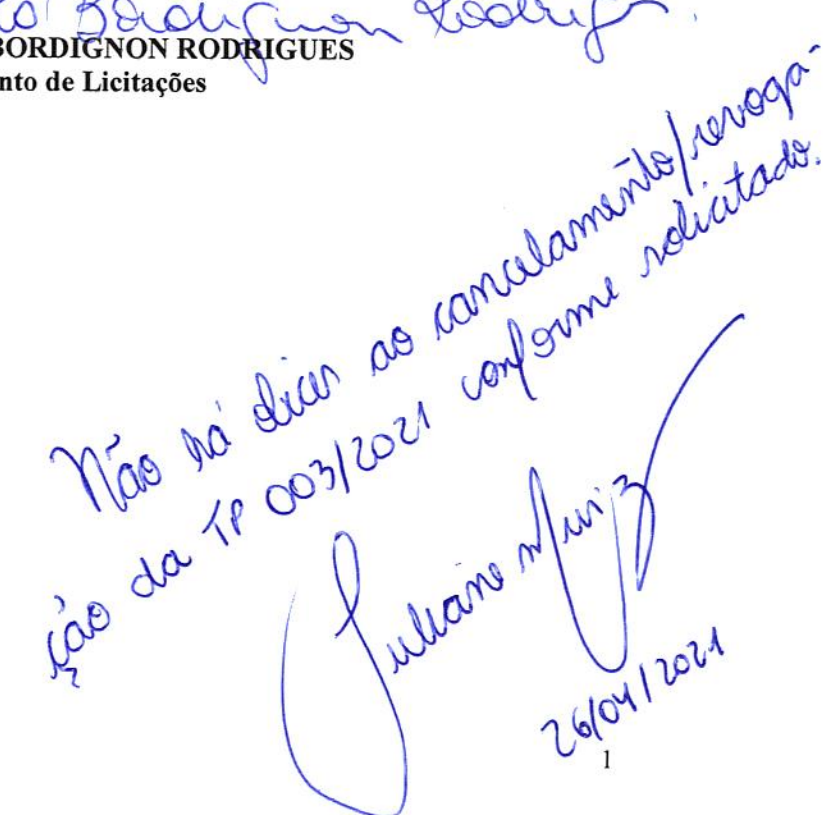 Bordignon Rodrigues.
BORDIGNON RODRIGUES
nto de Licitações
Não há óbices ao cancelamento/revoga-
ção da TP 003/2021 conforme solicitado.
Juliane Muniz
26/04/2021
1